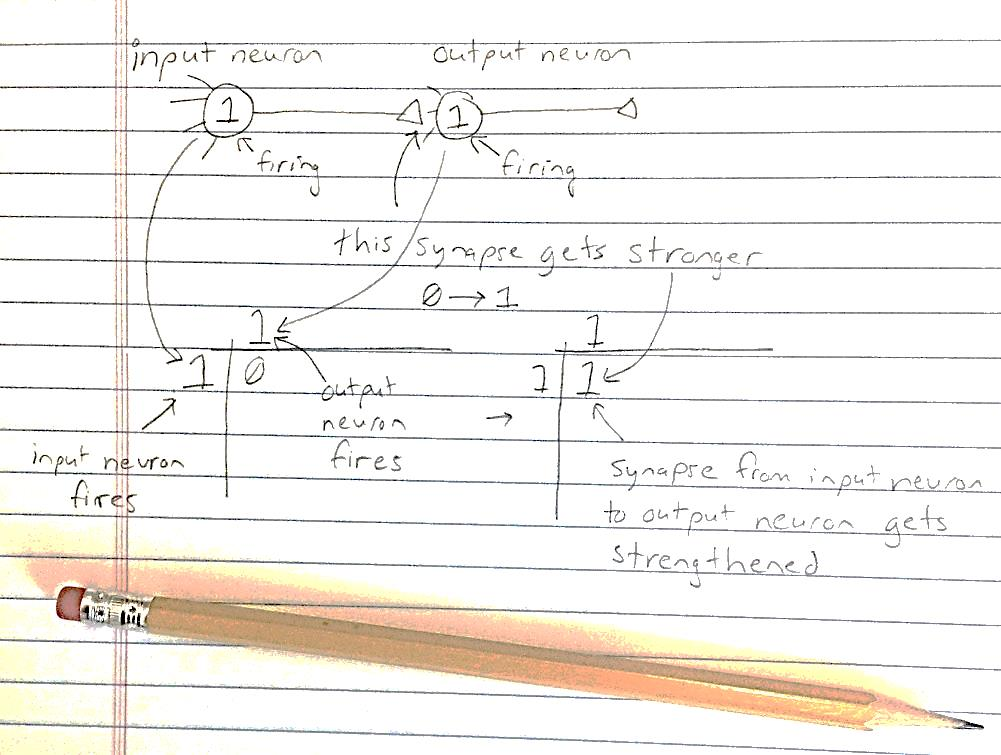 input neuron
output neuron
1
1
firing
firing
this synapse gets stronger
0→1
1
1
1
0
1
1
output
neuron
fires
→
input neuron
fires
synapse from input neuron
to output neuron gets
strengthened